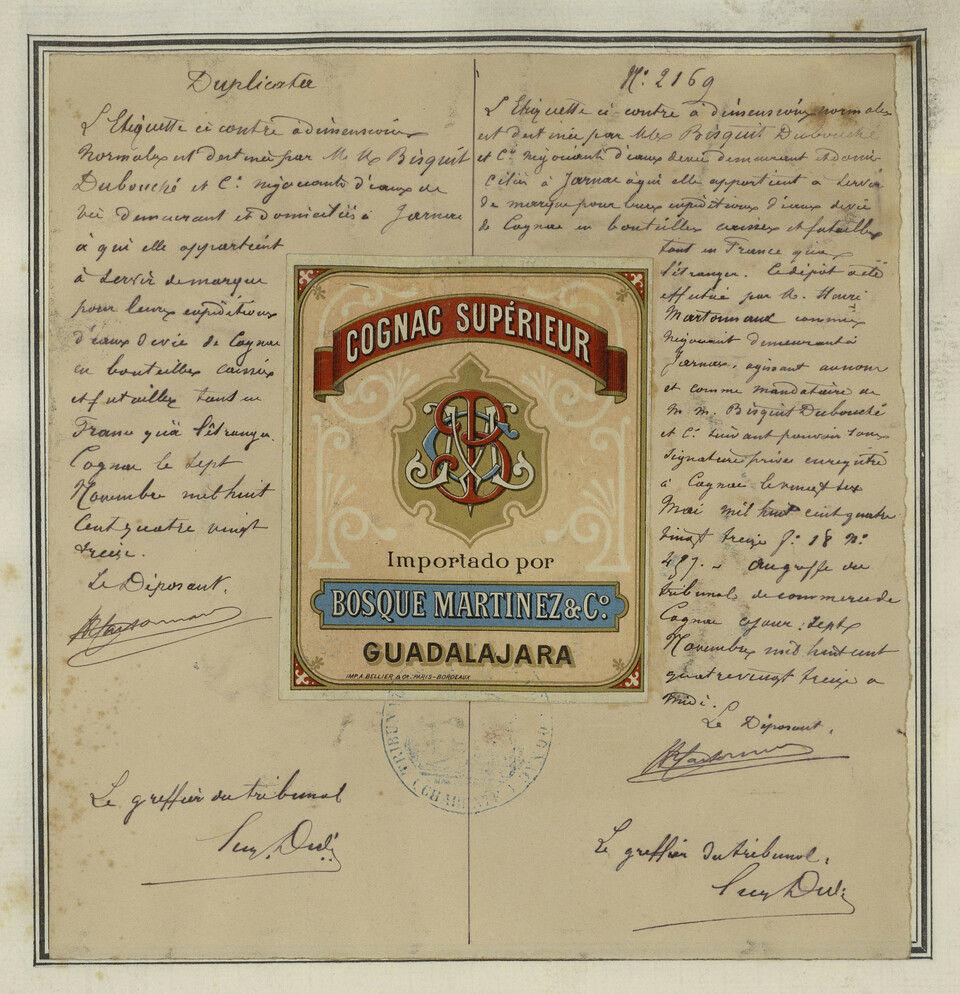 Duplicata
L'Etiquette ci contre à dimensions
Normales est destinée par M M Bisquit
Dubouché et Cie négociants d'eaux de
vie demeurant et domiciliés à Jarnac
à qui elle appartient
à servir de marque
pour leurs expéditions
d'eaux de vie de Cognac
en bouteilles caisses
et futailles tant en
France qu'à l'étranger.
Cognac le sept
Novembre mil huit
cent quatre vingt
treize.
Le Déposant.
Le greffier du tribunal
N° 2169
L'Etiquette ci contre à dimensions normales
est destinée par MM Bisquit Dubouché
et Cie négociants d'eaux de vie demeurant et domi
ciliés à Jarnac à qui elle appartient à servir
de marque pour leurs expéditions d'eaux de vie
de Cognac en bouteilles caisses et futailles
tant en France qu'à
l'étranger. Ce dépôt a été
effectué par M. Henri
Martonnaud commis
négociant demeurant à
Jarnac. agissant au nom
et comme mandataire de
M. M. Bisquit Dubouché
et Cie suivant pouvoir sous
signature privée enregistré
à Cognac le vingt six
Mai mil huit cent quatre
vingt treize f° 18 N°
au greffe du
tribunal de commerce de
Cognac ce jour: sept
Novembre mil huit cent
quatre vingt treize à
midi.
Le Déposant.
Le greffier du tribunal.
COGNAC SUPÉRIEUR
Importado por
BOSQUE MARTINEZ & Co.
GUADALAJARA
IMP. A. BELLIER & Cie. PARIS-BORDEAUX
CHARENTE